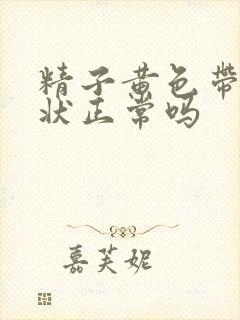 精子黄色带
状正常吗
嘉芙妮